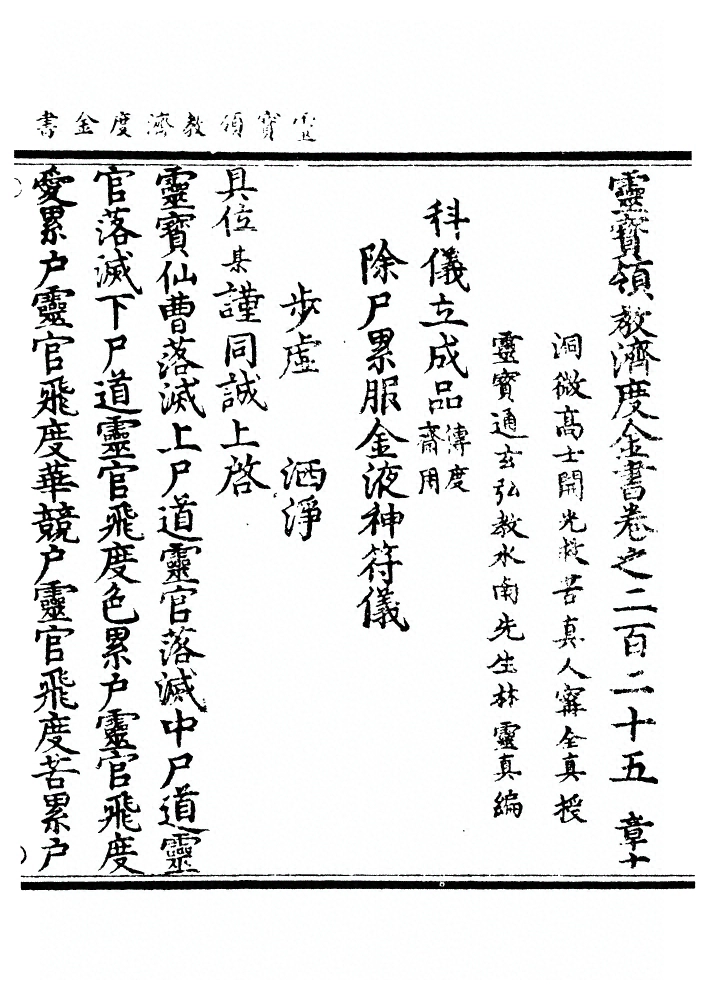 靈寶領教濟度金書
靈寶領教濟度金書卷之二百二十五 章十
洞微高士開光救苦真人寗全真授
靈寶通玄弘教水南先生林靈真編
科儀立成品傳度齋用
除尸累服金液神符儀
步虛 洒淨
具位某謹同誠上啓
靈寶仙曹落滅上尸道靈官落滅中尸道靈
官落滅下尸道靈官飛度色累户靈官飛度
愛累户靈官飛度華競户靈官飛度苦累户